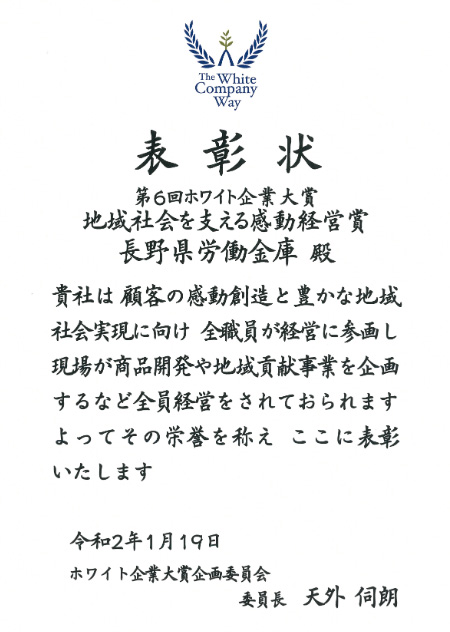 The White
Company
Way
表彰状
第6回ホワイト企業大賞
地域社会を支える感動経営賞
長野県労働金庫 殿
貴社は 顧客の感動創造と豊かな地域
社会実現に向け 全職員が経営に参画し
現場が商品開発や地域貢献事業を企画
するなど全員経営をされておられます
よってその栄誉を称え ここに表彰
いたします
令和2年1月19日
ホワイト企業大賞企画委員会
委員長 天外 伺朗